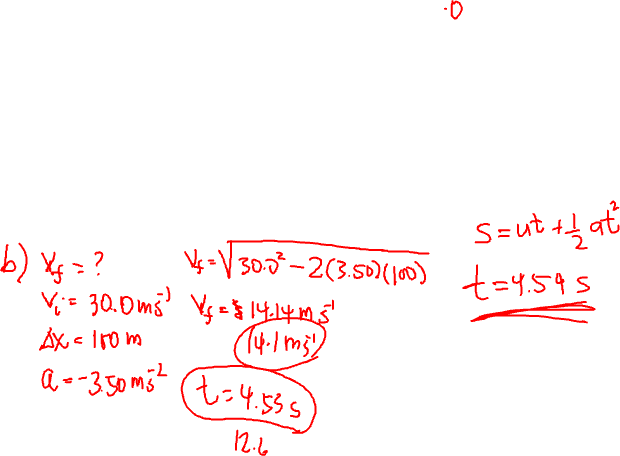 .0
b) V_f = ?
V_i = 30.0 ms⁻¹
Δx = 100 m
a = -3.50 ms⁻²
V_f = √(30.0² - 2(3.50)(100))
V_f = 14.14 ms⁻¹
14.1 ms⁻¹
t = 4.53 s
12.6
s = ut + ½ at²
t = 4.54 s